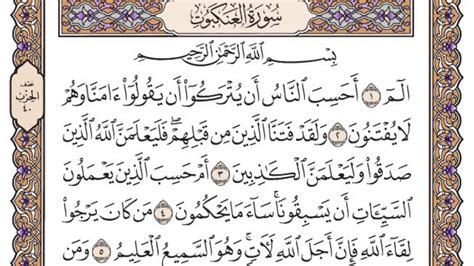 سُورَةُ العَنكَبُوتِ
بِسْمِ ٱللَّهِ ٱلرَّحْمَٰنِ ٱلرَّحِيمِ
نصف
الحزب
٤٠
الٓمٓ ١ أَحَسِبَ ٱلنَّاسُ أَن يُتْرَكُوٓا۟ أَن يَقُولُوٓا۟ ءَامَنَّا وَهُمْ
لَا يُفْتَنُونَ ٢ وَلَقَدْ فَتَنَّا ٱلَّذِينَ مِن قَبْلِهِمْ ۖ فَلَيَعْلَمَنَّ ٱللَّهُ ٱلَّذِينَ
صَدَقُوا۟ وَلَيَعْلَمَنَّ ٱلْكَٰذِبِينَ ٣ أَمْ حَسِبَ ٱلَّذِينَ يَعْمَلُونَ
ٱلسَّيِّـَٔاتِ أَن يَسْبِقُونَا ۚ سَآءَ مَا يَحْكُمُونَ ٤ مَن كَانَ يَرْجُوا۟
لِقَآءَ ٱللَّهِ فَإِنَّ أَجَلَ ٱللَّهِ لَـَٔاتٍ ۚ وَهُوَ ٱلسَّمِيعُ ٱلْعَلِيمُ ٥ وَمَن